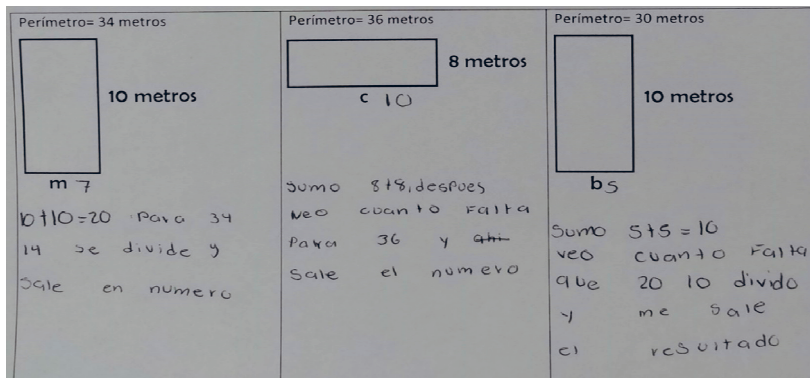 Perímetro= 34 metros
10 metros
m 7
10+10=20 para 34
14 se divide y
sale en numero
Perímetro= 36 metros
8 metros
c 10
sumo 8+8, despues
veo cuanto falta
para 36 y ahi
sale el numero
Perímetro= 30 metros
10 metros
b 5
sumo 5+5=10
veo cuanto falta
que 20 lo divido
y me sale
el resultado